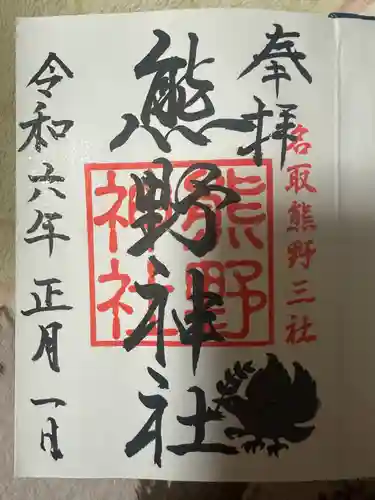 奉拝
名取熊野三社
熊野神社
熊野
神社
令和六年正月一日